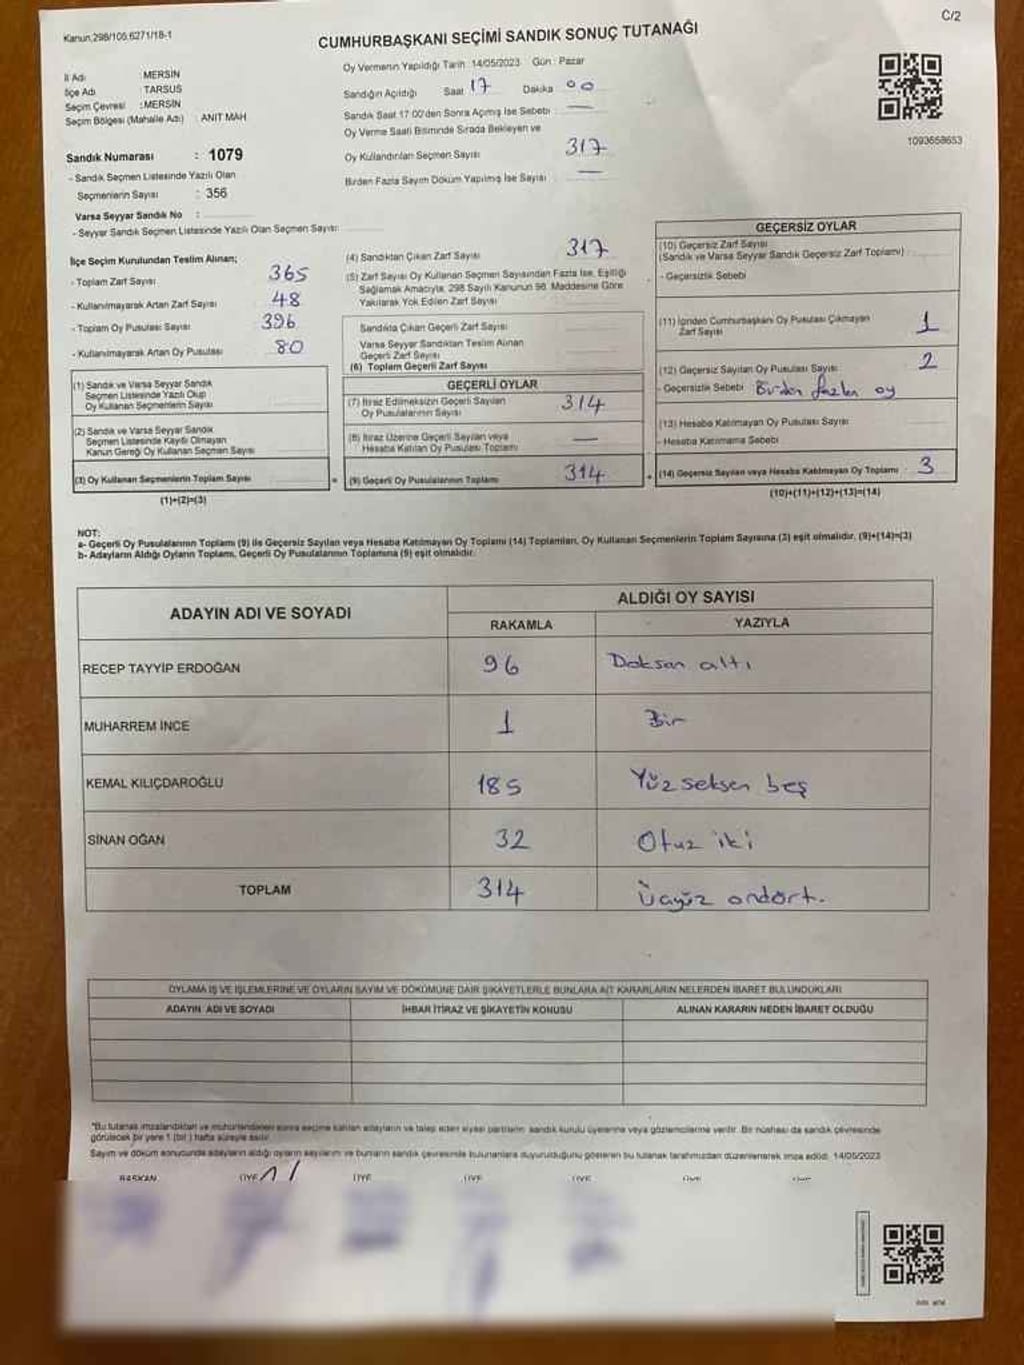 Kanun,298/105,6271/18-1
C/2
CUMHURBAŞKANI SEÇİMİ SANDIK SONUÇ TUTANAĞI
İl Adı : MERSİN
İlçe Adı : TARSUS
Seçim Çevresi : MERSİN
Seçim Bölgesi (Mahalle Adı) : ANIT MAH
Sandık Numarası : 1079
- Sandık Seçmen Listesinde Yazılı Olan
Seçmenlerin Sayısı : 356
Varsa Seyyar Sandık No :
- Seyyar Sandık Seçmen Listesinde Yazılı Olan Seçmen Sayısı:
Oy Vermenin Yapıldığı Tarih :14/05/2023 Gün : Pazar
Sandığın Açıldığı Saat 17 Dakika 00
Sandık Saat 17.00'den Sonra Açılmış İse Sebebi : —
Oy Verme Saati Bitiminde Sırada Bekleyen ve
Oy Kullandırılan Seçmen Sayısı 317
Birden Fazla Sayım Döküm Yapılmış İse Sayısı —
1093658653
İlçe Seçim Kurulundan Teslim Alınan;
- Toplam Zarf Sayısı 365
- Kullanılmayarak Artan Zarf Sayısı 48
- Toplam Oy Pusulası Sayısı 396
- Kullanılmayarak Artan Oy Pusulası 80
(1) Sandık ve Varsa Seyyar Sandık
Seçmen Listesinde Yazılı Olup
Oy Kullanan Seçmenlerin Sayısı
(2) Sandık ve Varsa Seyyar Sandık
Seçmen Listesinde Kayıtlı Olmayan
Kanun Gereği Oy Kullanan Seçmen Sayısı
(3) Oy Kullanan Seçmenlerin Toplam Sayısı
(1)+(2)=(3)
(4) Sandıktan Çıkan Zarf Sayısı 317
(5) Zarf Sayısı Oy Kullanan Seçmen Sayısından Fazla İse, Eşitliği
Sağlamak Amacıyla, 298 Sayılı Kanunun 98. Maddesine Göre
Yakılarak Yok Edilen Zarf Sayısı
Sandıkta Çıkan Geçerli Zarf Sayısı
Varsa Seyyar Sandıktan Teslim Alınan
Geçerli Zarf Sayısı
(6) Toplam Geçerli Zarf Sayısı
GEÇERLİ OYLAR
(7) İtiraz Edilmeksizin Geçerli Sayılan
Oy Pusulalarının Sayısı 314
(8) İtiraz Üzerine Geçerli Sayılan veya
Hesaba Katılan Oy Pusulası Toplamı —
(9) Geçerli Oy Pusulalarının Toplamı 314
GEÇERSİZ OYLAR
(10) Geçersiz Zarf Sayısı
(Sandık ve Varsa Seyyar Sandık Geçersiz Zarf Toplamı)
- Geçersizlik Sebebi
(11) İçinden Cumhurbaşkanı Oy Pusulası Çıkmayan
Zarf Sayısı 1
(12) Geçersiz Sayılan Oy Pusulası Sayısı 2
- Geçersizlik Sebebi Birden fazla oy
(13) Hesaba Katılmayan Oy Pusulası Sayısı
- Hesaba Katılmama Sebebi
(14) Geçersiz Sayılan veya Hesaba Katılmayan Oy Toplamı 3
(10)+(11)+(12)+(13)=(14)
NOT:
a- Geçerli Oy Pusulalarının Toplamı (9) ile Geçersiz Sayılan veya Hesaba Katılmayan Oy Toplamı (14) Toplamları, Oy Kullanan Seçmenlerin Toplam Sayısına (3) eşit olmalıdır. (9)+(14)=(3)
b- Adayların Aldığı Oyların Toplamı, Geçerli Oy Pusulalarının Toplamına (9) eşit olmalıdır.
ADAYIN ADI VE SOYADI
ALDIĞI OY SAYISI
RAKAMLA YAZIYLA
RECEP TAYYİP ERDOĞAN 96 Doksan altı
MUHARREM İNCE 1 Bir
KEMAL KILIÇDAROĞLU 185 Yüz seksen beş
SİNAN OĞAN 32 Otuz iki
TOPLAM 314 Üçyüz ondört.
OYLAMA İŞ VE İŞLEMLERİNE VE OYLARIN SAYIM VE DÖKÜMÜNE DAİR ŞİKAYETLERLE BUNLARA AİT KARARLARIN NELERDEN İBARET BULUNDUKLARI
ADAYIN ADI VE SOYADI İHBAR İTİRAZ VE ŞİKAYETİN KONUSU ALINAN KARARIN NEDEN İBARET OLDUĞU
"Bu tutanak imzalandıktan ve mühürlendikten sonra seçime katılan adayların ve talep eden siyasi partilerin sandık kurulu üyelerine veya gözlemcilerine verilir. Bir nüshası da sandık çevresinde
görülecek bir yere 1 (bir) hafta süreyle asılır.
Sayım ve döküm sonucunda adayların aldığı oyların sayılarını ve bunların sandık çevresinde bulunanlara duyurulduğunu gösteren bu tutanak tarafımızdan düzenlenerek imza edildi. 14/05/2023
BAŞKAN ÜYE ÜYE ÜYE ÜYE ÜYE